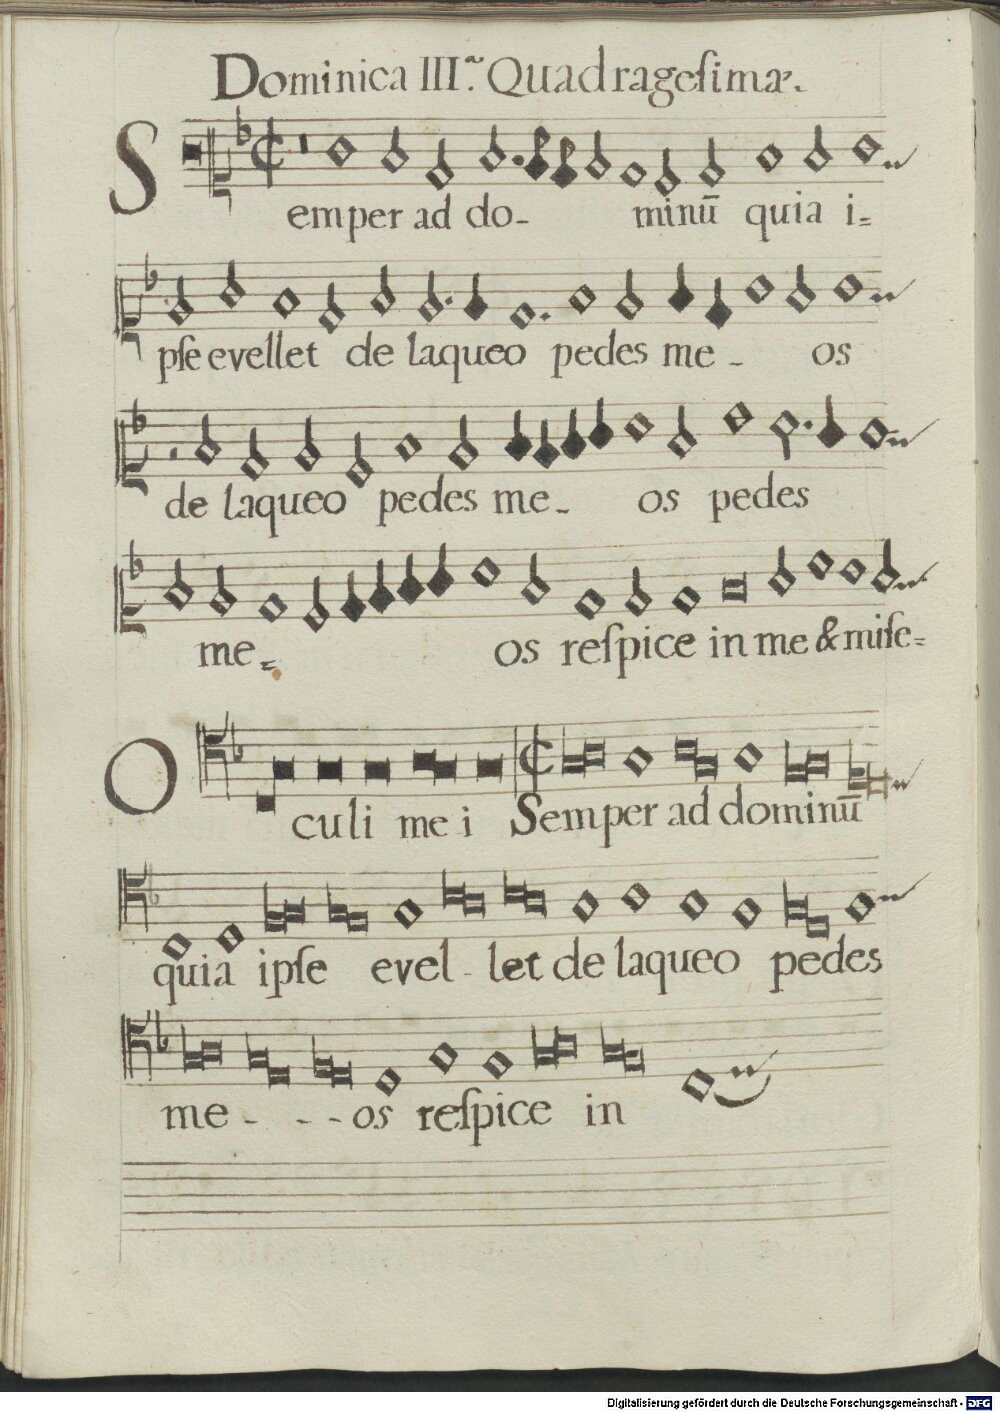 Dominica III.ᵃ Quadragesimæ.
Semper ad do- minū quia i=
pſe evellet de laqueo pedes me - os
de laqueo pedes me - os pedes
me = os reſpice in me & miſe=
Oculi mei Semper ad dominū
quia ipſe evel - let de laqueo pedes
me - - - os reſpice in
Digitalisierung gefördert durch die Deutsche Forschungsgemeinschaft - DFG